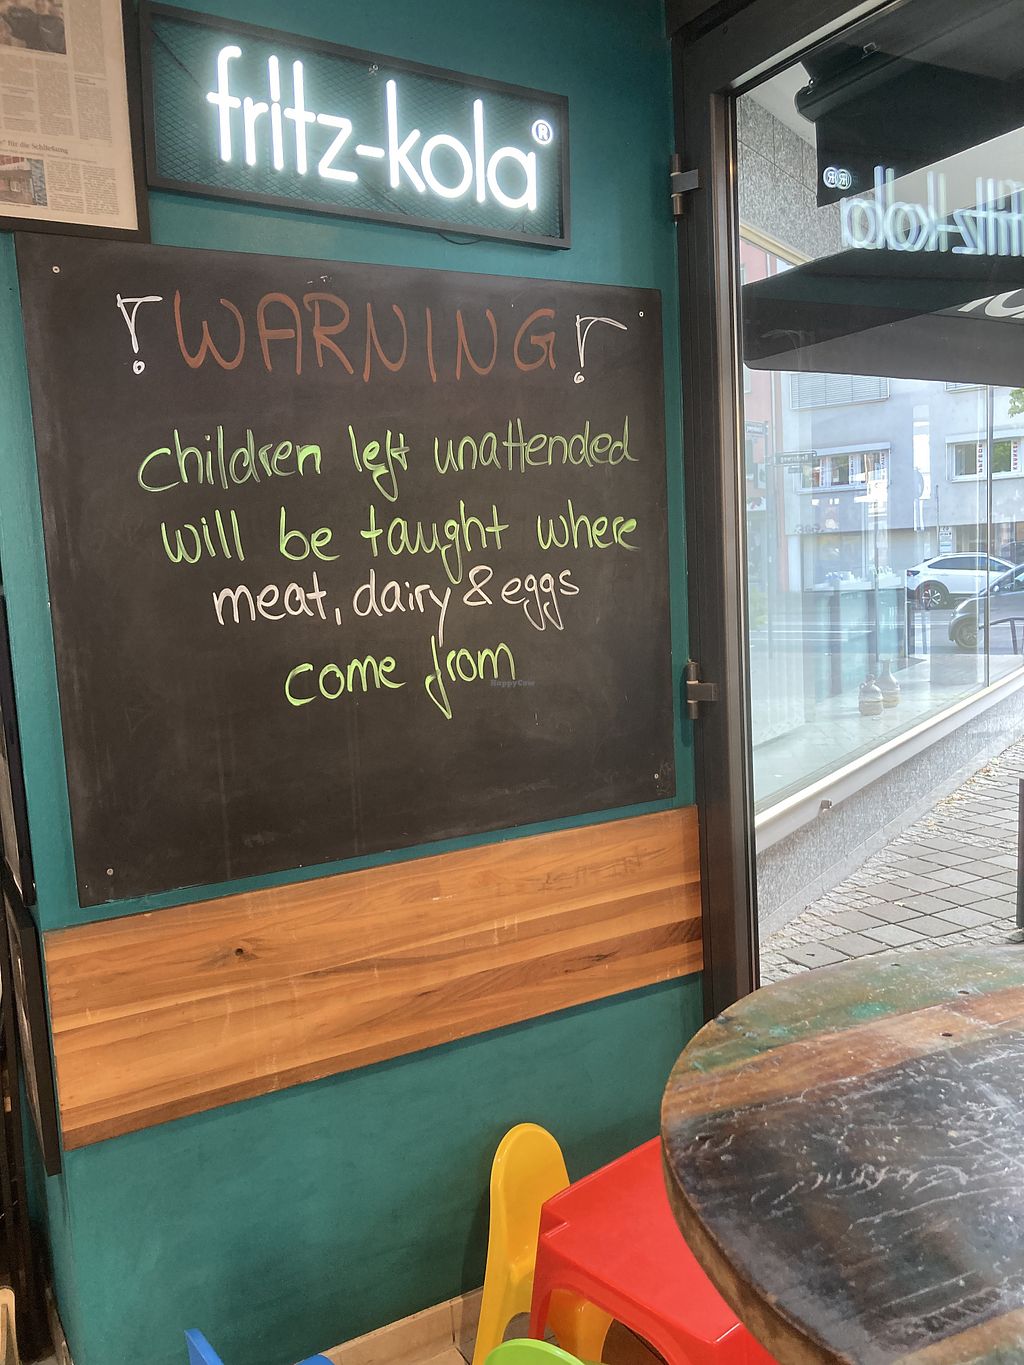 " für die Schließung
fritz-kola®
! WARNING !
children left unattended
will be taught where
meat, dairy & eggs
come from
HappyCow